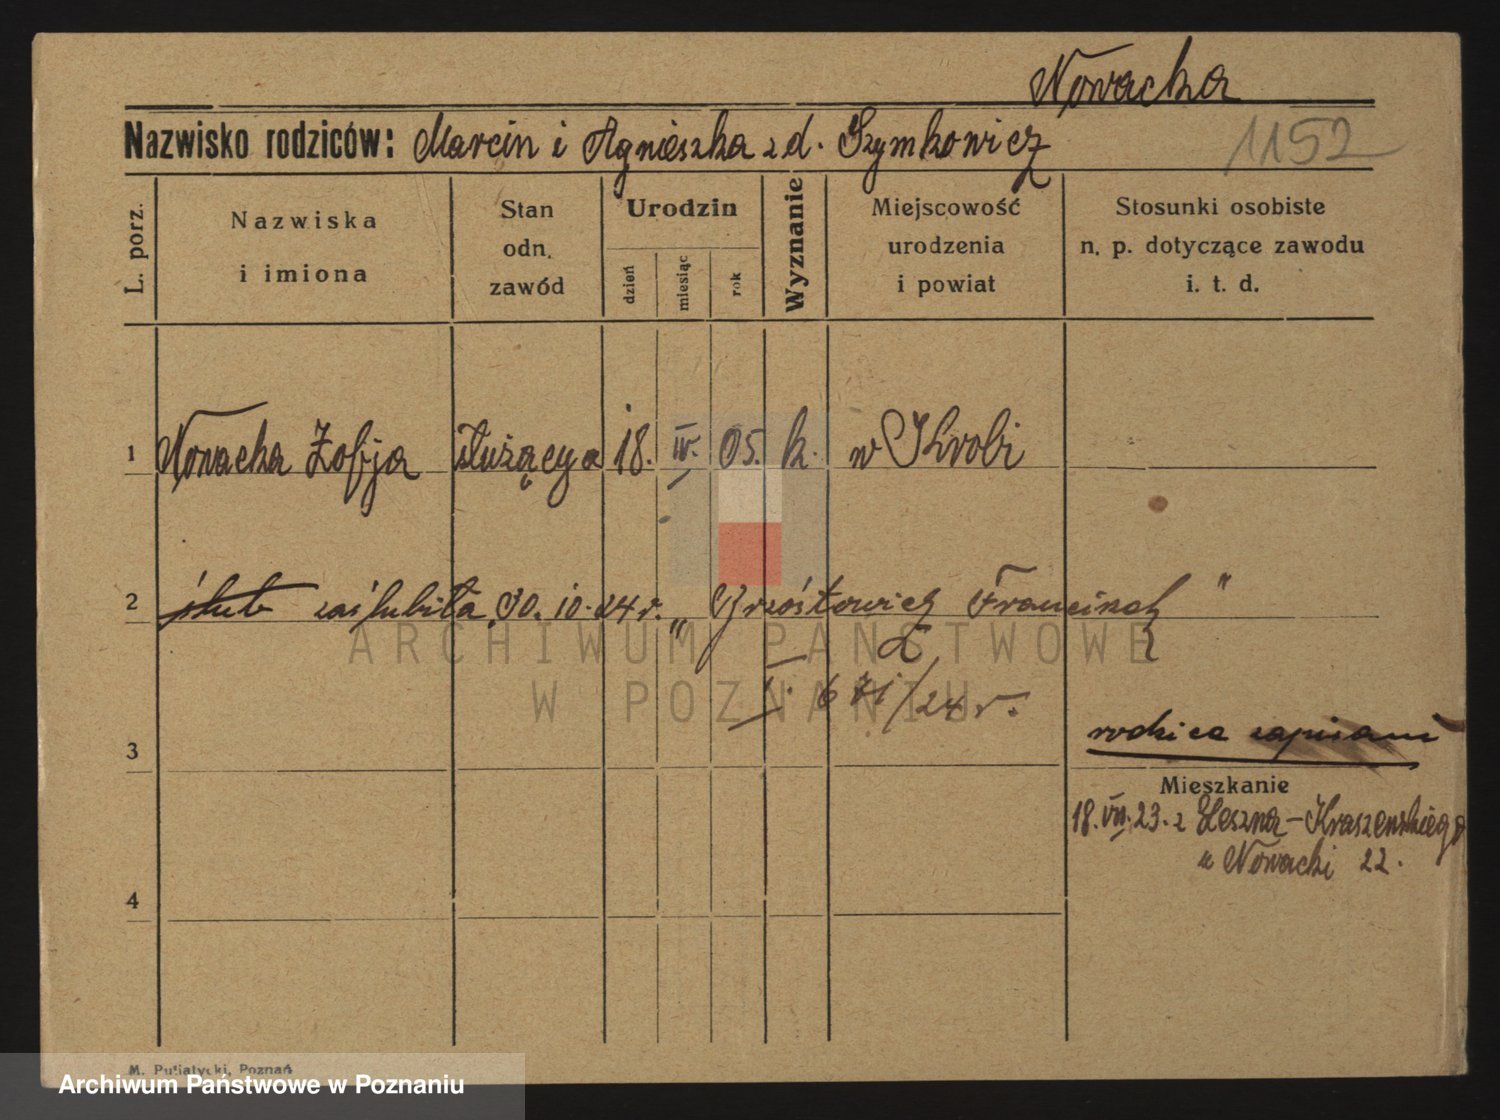 Nowacka
Nazwisko rodziców: Marcin i Agnieszka z d. Szymkowicz
1152
L. porz.
Nazwiska
i imiona
Stan
odn.
zawód
Urodzin
dzień
miesiąc
rok
Wyznanie
Miejscowość
urodzenia
i powiat
Stosunki osobiste
n. p. dotyczące zawodu
i. t. d.
1 Nowacka Zofja służąca 18. IV. 05. k. w Krobi
2 ślub zaślubiła 30. 10. 24 r. „Brzóstowicz Franciszek"
24 r.
3
rodzice zapisani
Mieszkanie
18. VII. 23. z Leszna - Kraszewskiego
u Nowacki 22.
4
M. Putiatycki, Poznań
ARCHIWUM PAŃSTWOWE
W POZNANIU
Archiwum Państwowe w Poznaniu